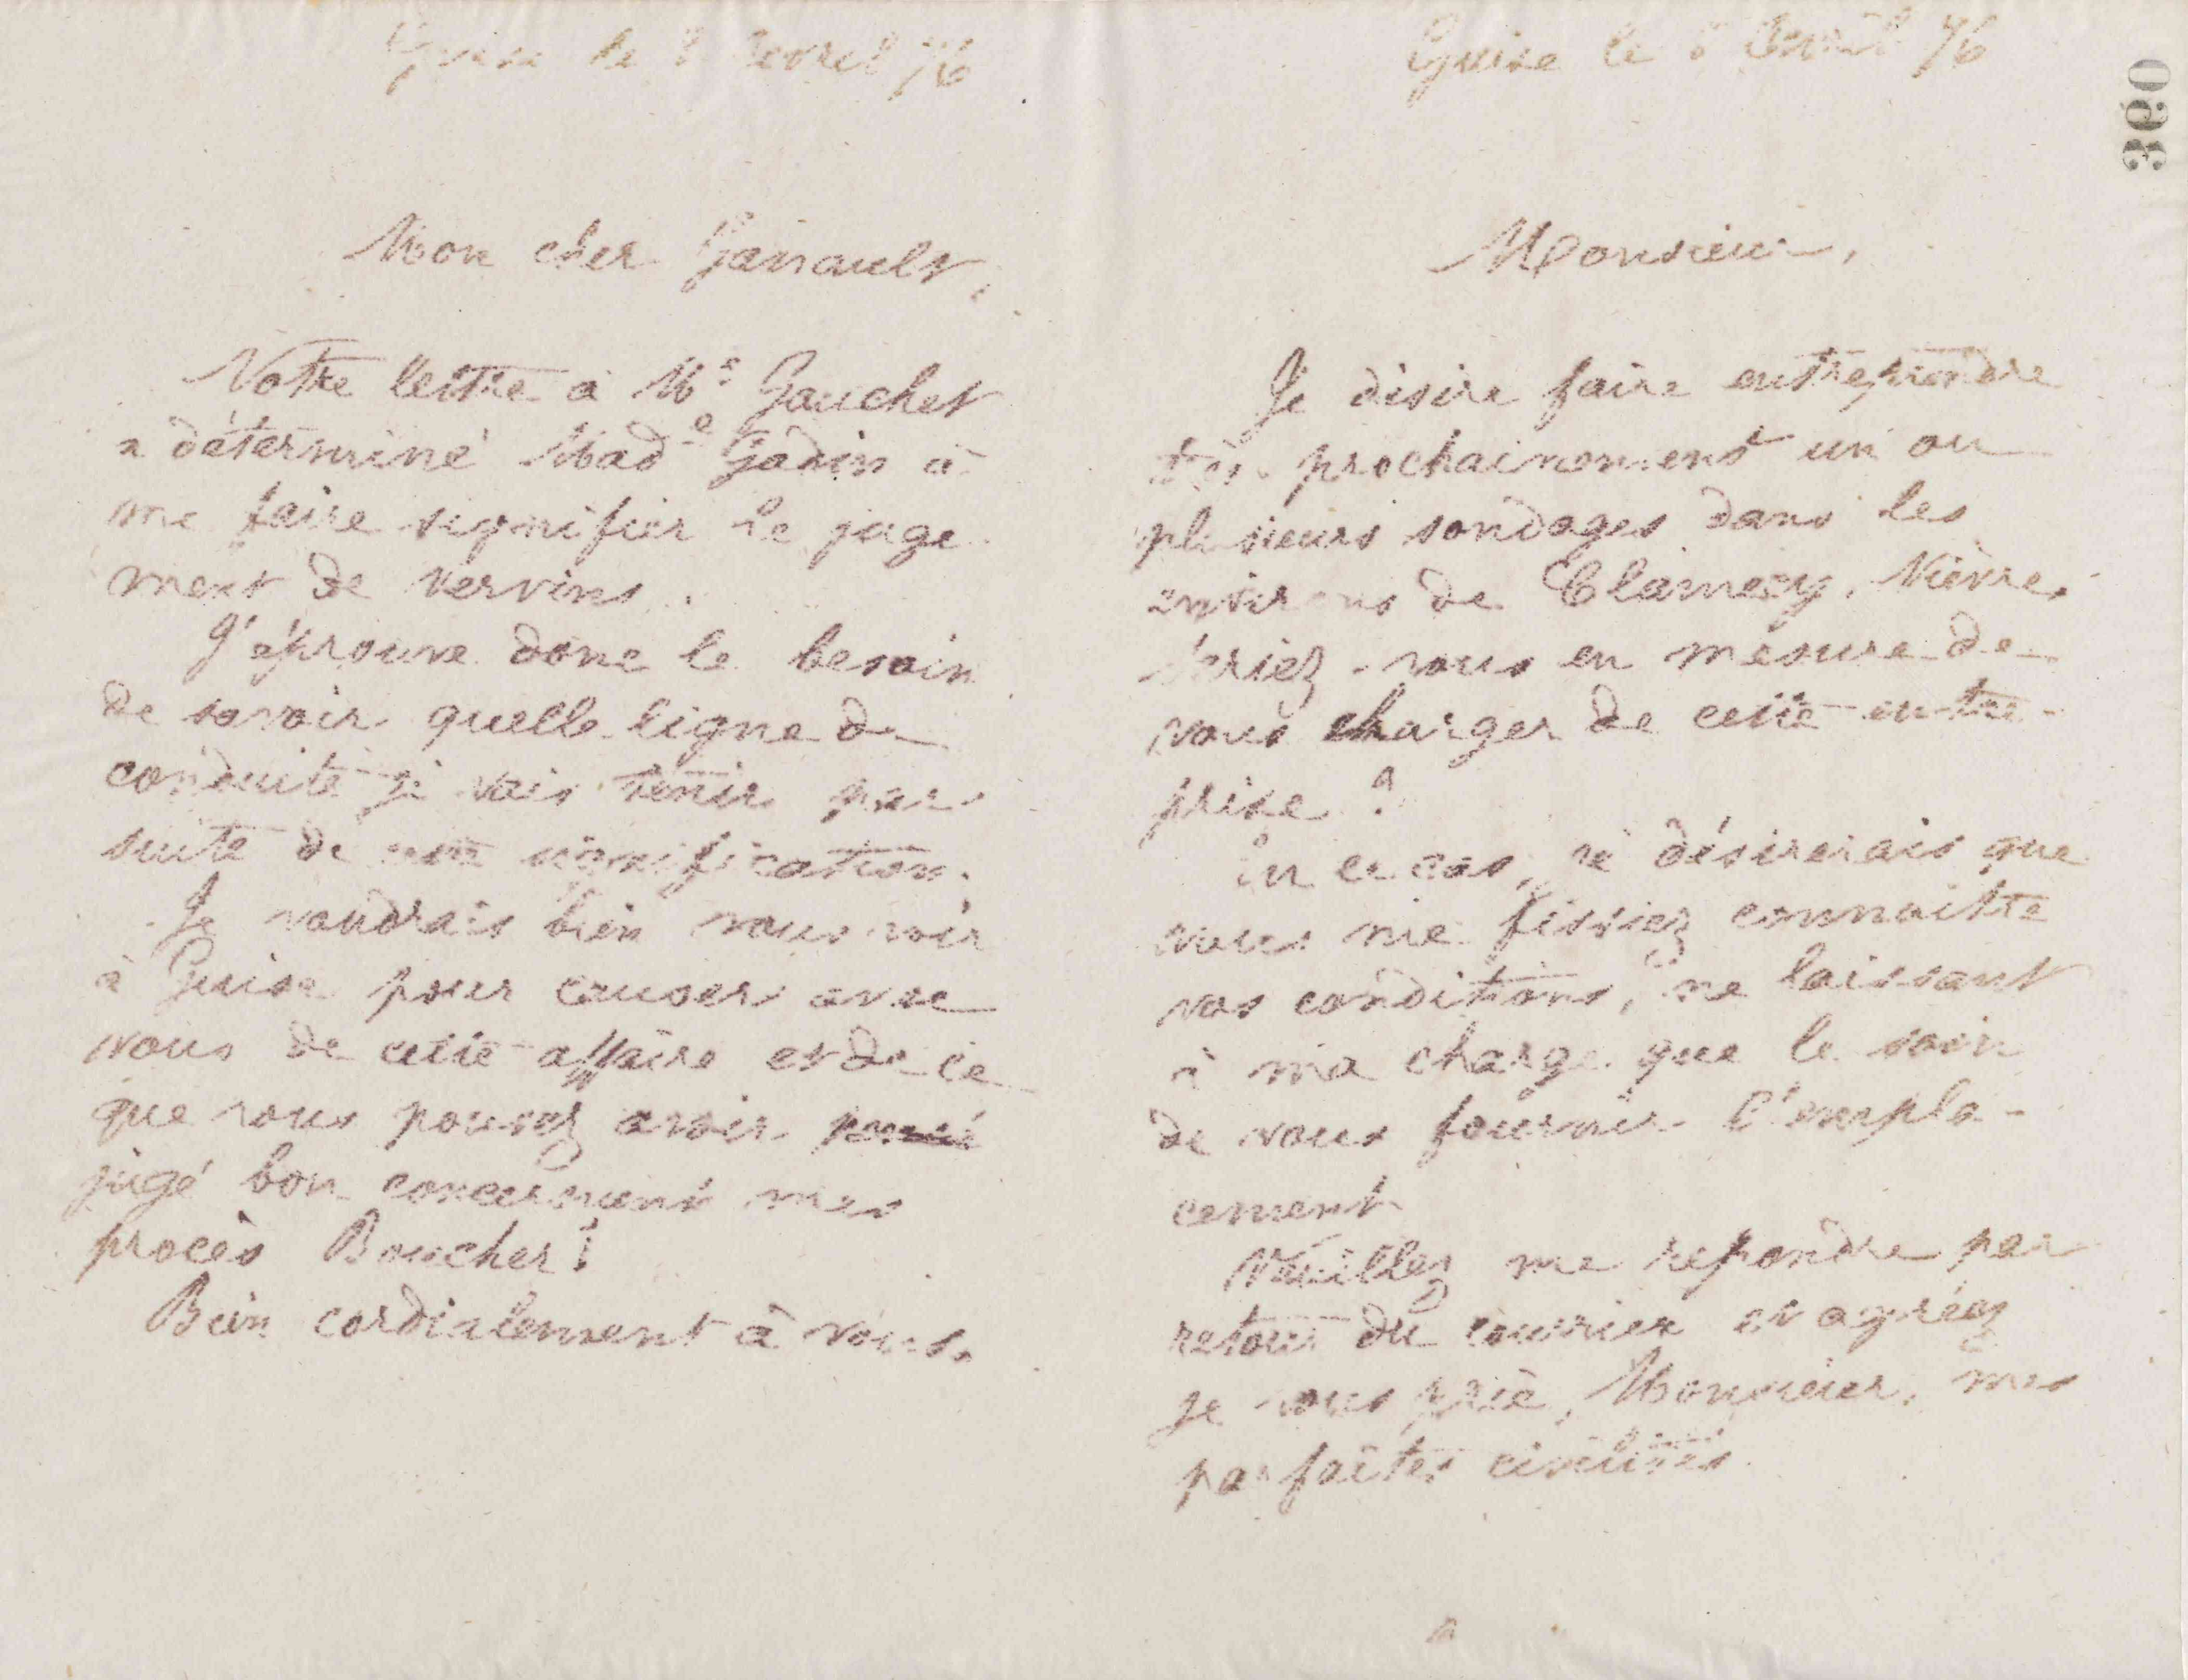 Guise le 8 Avril 76
Mon cher Garrault,
Votre lettre à Mr Gauchet
a déterminé Made Godin à
me faire signifier le juge
ment de Vervins.
J'éprouve donc le besoin
de savoir quelle ligne de
conduite je vais tenir par
suite de cette signification.
Je voudrais bien vous voir
à Guise pour causer avec
vous de cette affaire et de ce
que vous pouvez avoir
jugé bon concernant mes
procès Boucher !
Bien cordialement à vous.
360
Guise le 8 Avril 76
Monsieur,
Je désire faire entreprendre
très prochainement un ou
plusieurs sondages dans les
environs de Clamecy, Nièvre,
seriez-vous en mesure de
vous charger de cette entre-
prise ?
En ce cas, je désirerais que
vous me fissiez connaitre
vos conditions, ne laissant
à ma charge que le soin
de vous fournir l'empla-
cement.
Veuillez me répondre par
retour du courrier et agréez
je vous prie, Monsieur, mes
parfaites civilités